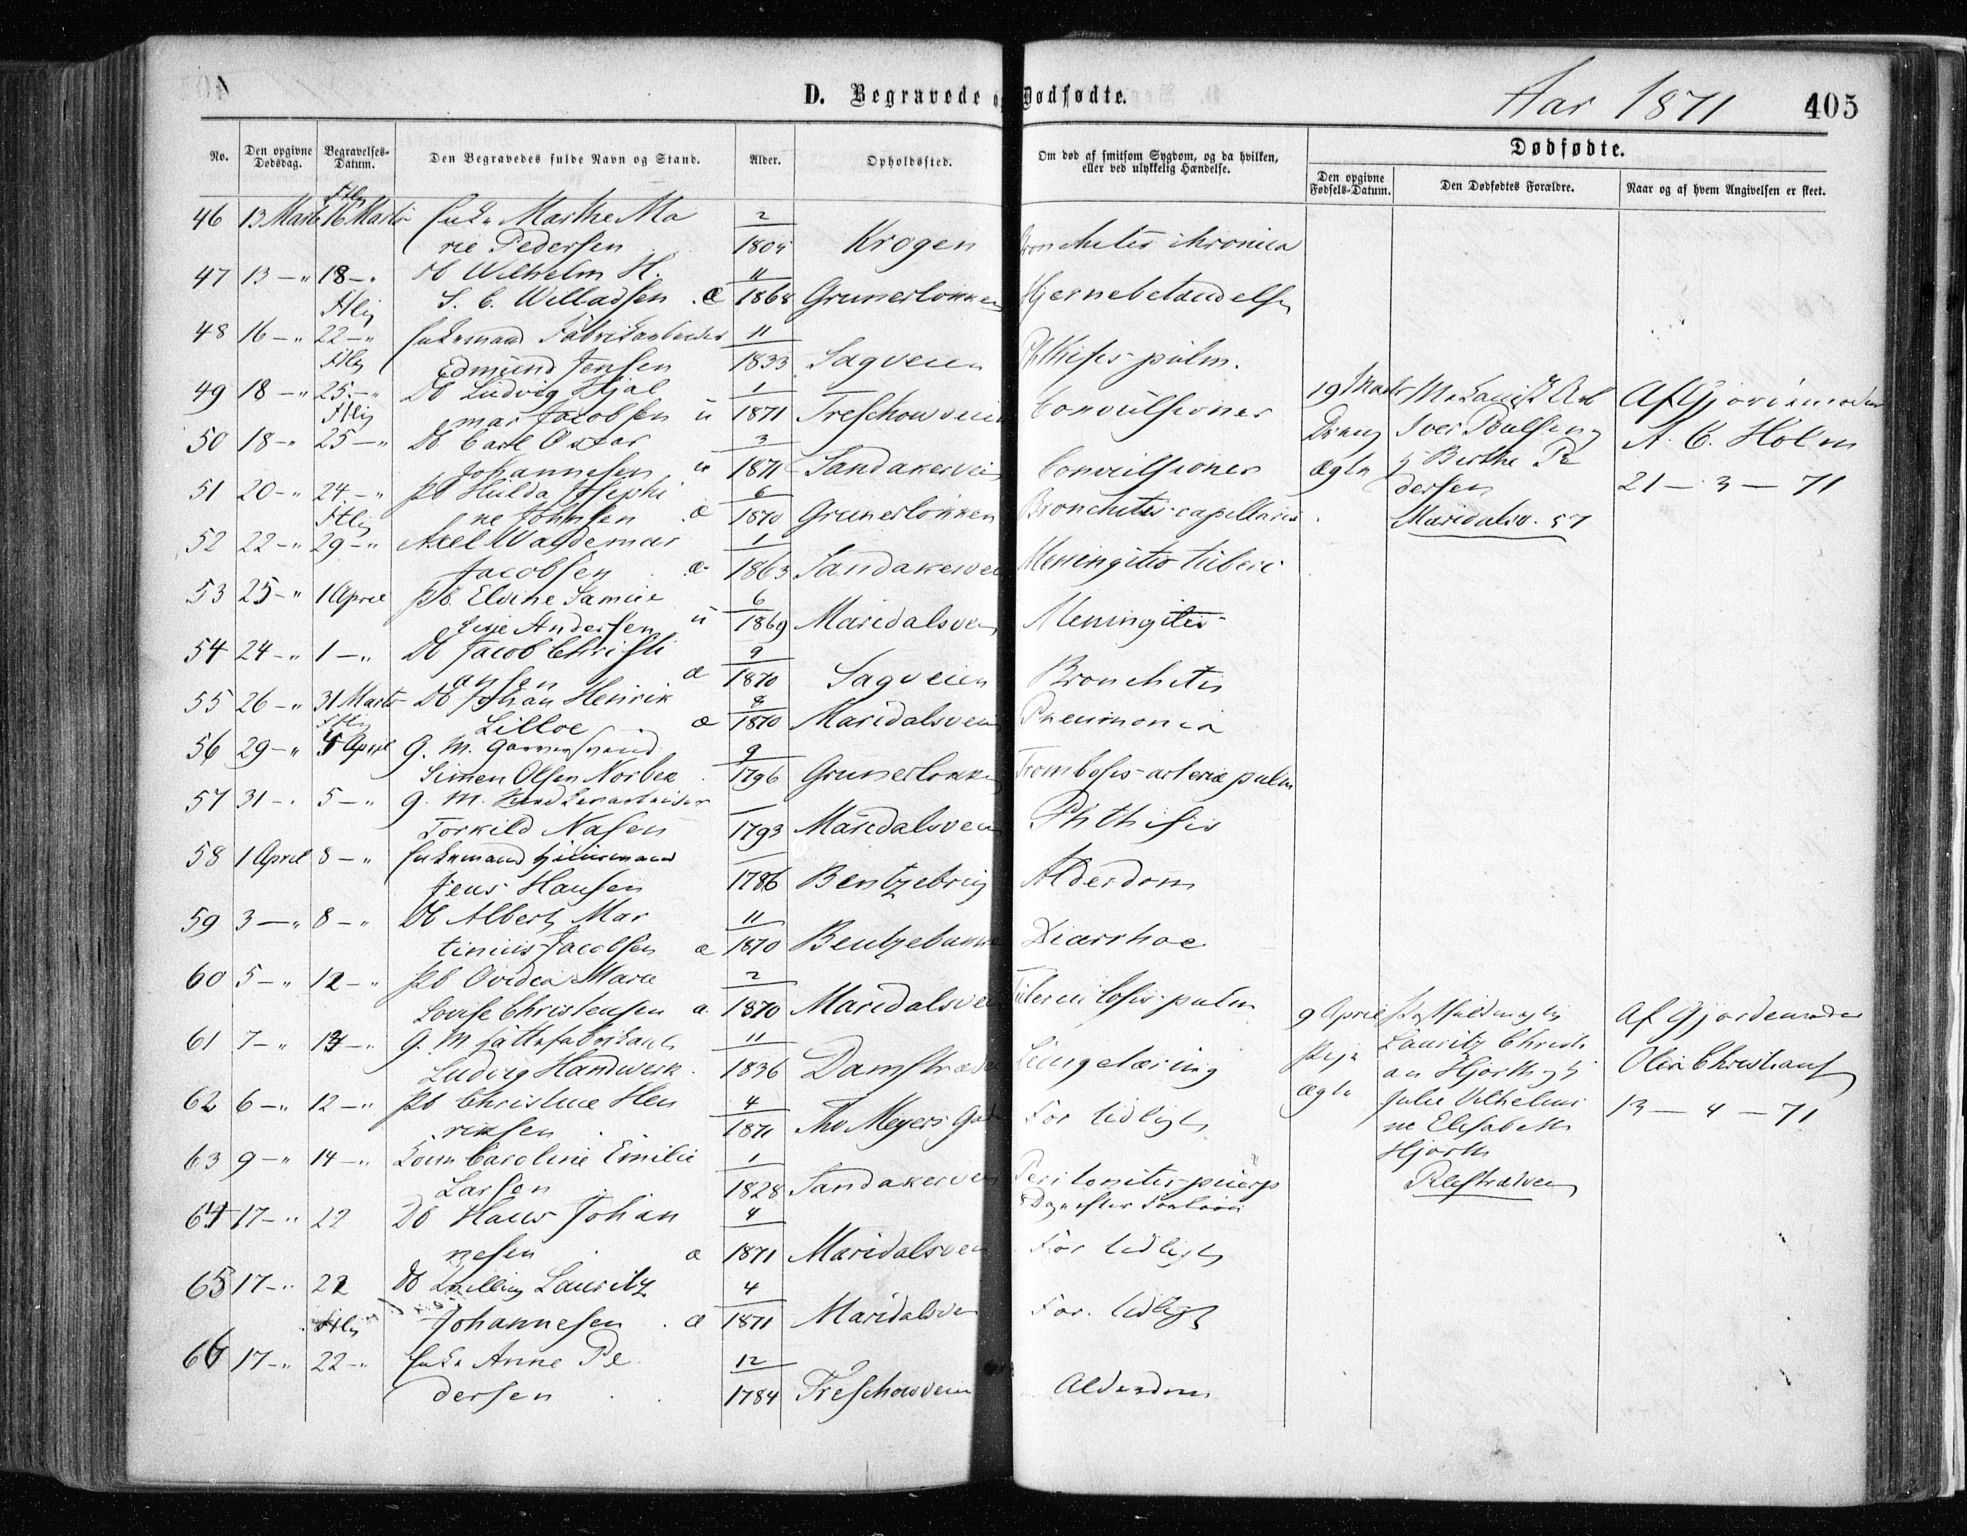 D. Begravede og Dødfødte.
Aar 1871
405
No.
Den opgivne Dødsdag.
Begravelses-Datum.
Den Begravedes fulde Navn og Stand.
Alder.
Opholdssted.
Om død af smitsom Sygdom, og da hvilken, eller ved ulykkelig Hændelse.
Dødfødte.
Den opgivne Fødsels-Datum.
Den Dødfødtes Forældre.
Naar og af hvem Angivelsen er skeet.
46 13 Marts 16 Marts Enke Marthe Ma 2
rie Pedersen 1805 Krogen Bronchitis chronica
47 13 - " 18 - " Db Wilhelm H. 11
S. C. Willadsen . æ 1868 Grunerløkken Hjernebetændelse
48 16 - " 22 - " Enkemand Fabrikarbeider 11
Edmund Jensen 1833 Sagveien Phthisis pulm.
49 18 - " 25 - " Db Ludvig Hjal 1
mar Jacobsen u 1871 Treschowveien Convulsioner
50 18 - " 25 - " Db Carl Oscar 3
Johannesen u 1871 Sandakerveien Convulsioner
51 20 - " 24 - " Pb Hulda Josephi 6
ne Johnsen . æ 1870 Grunerløkken Bronchitis capillaris
52 22 - " 29 - " Axel Waldemar 1
Jacobsen . æ 1863 Sandakerveien Meningitis tuberc
53 25 - " 1 April Pb. Elvine
Andersen u 6 1869 Maridalsveien Meningitis
54 24 - " 1 - " Db Jacob Christi 9
ansen æ 1870 Sagveien Bronchitis
55 26 - " 31 Marts Db Johan Henrik
Lilloe . æ 1870 Maridalsveien Pneumonia
56 29 - " April G. M. Garversvend 9
Simen Olsen Norbek . 1796 Grunerløkken Trombosis arteriæ pulm
57 31 - " 5 - " G. M.
Torkild Nasen 1793 Maridalsveien Phthisis
58 1 April 8 - " Enkemand Huusmand
Jens Hansen 1786 Bentzebrug Alderdom
59 3 - " 8 - " Db Albert Mar 11
tinius Jacobsen æ 1870 Bentzebakken Diarrhoe
60 5 - " 12 - " Pb Ovidia Marie 2
Lovise Christensen æ 1870 Maridalsveien Tuberculosis pulm
61 7 - " - " G. M. Hattefabrikant 11
Ludvig Handwerk . 1836 Damstrædet Lungetæring
62 6 - " 12 - " Pb Christine Hen 4
riksen . 1871 Th. Meyers Gade For tidligt
63 9 - " 14 - " Caroline Emilie 1
Larson 1828 Sandakerveien Peritonitis puerp
8 Dage efter
64 17 - " 22 Db Hans Johan 4
nesen . æ 1871 Maridalsveien For tidligt
65 17 - " 22 Db Tvilling Lauritz 4
Johannesen . æ 1871 Maridalsveien For tidligt
66 17 - " 22 - " Enke Anne Pe 12
dersen . 1784 Treschowveien Alderdom
19 Marts
Dreng
ægte
Iver Poulsen og
H Berthe Pe
dersen
Maridalsv. 57
Af Gjordemoder
A. C. Holm
21 - 3 - 71
9 April
Pige
ægte
Lauritz Christi
an Hjorth og H
Julie Vilhelmi
ne Elisabeth
Hjorth
Af Gjordemoder
Oline Christians
13 - 4 - 71